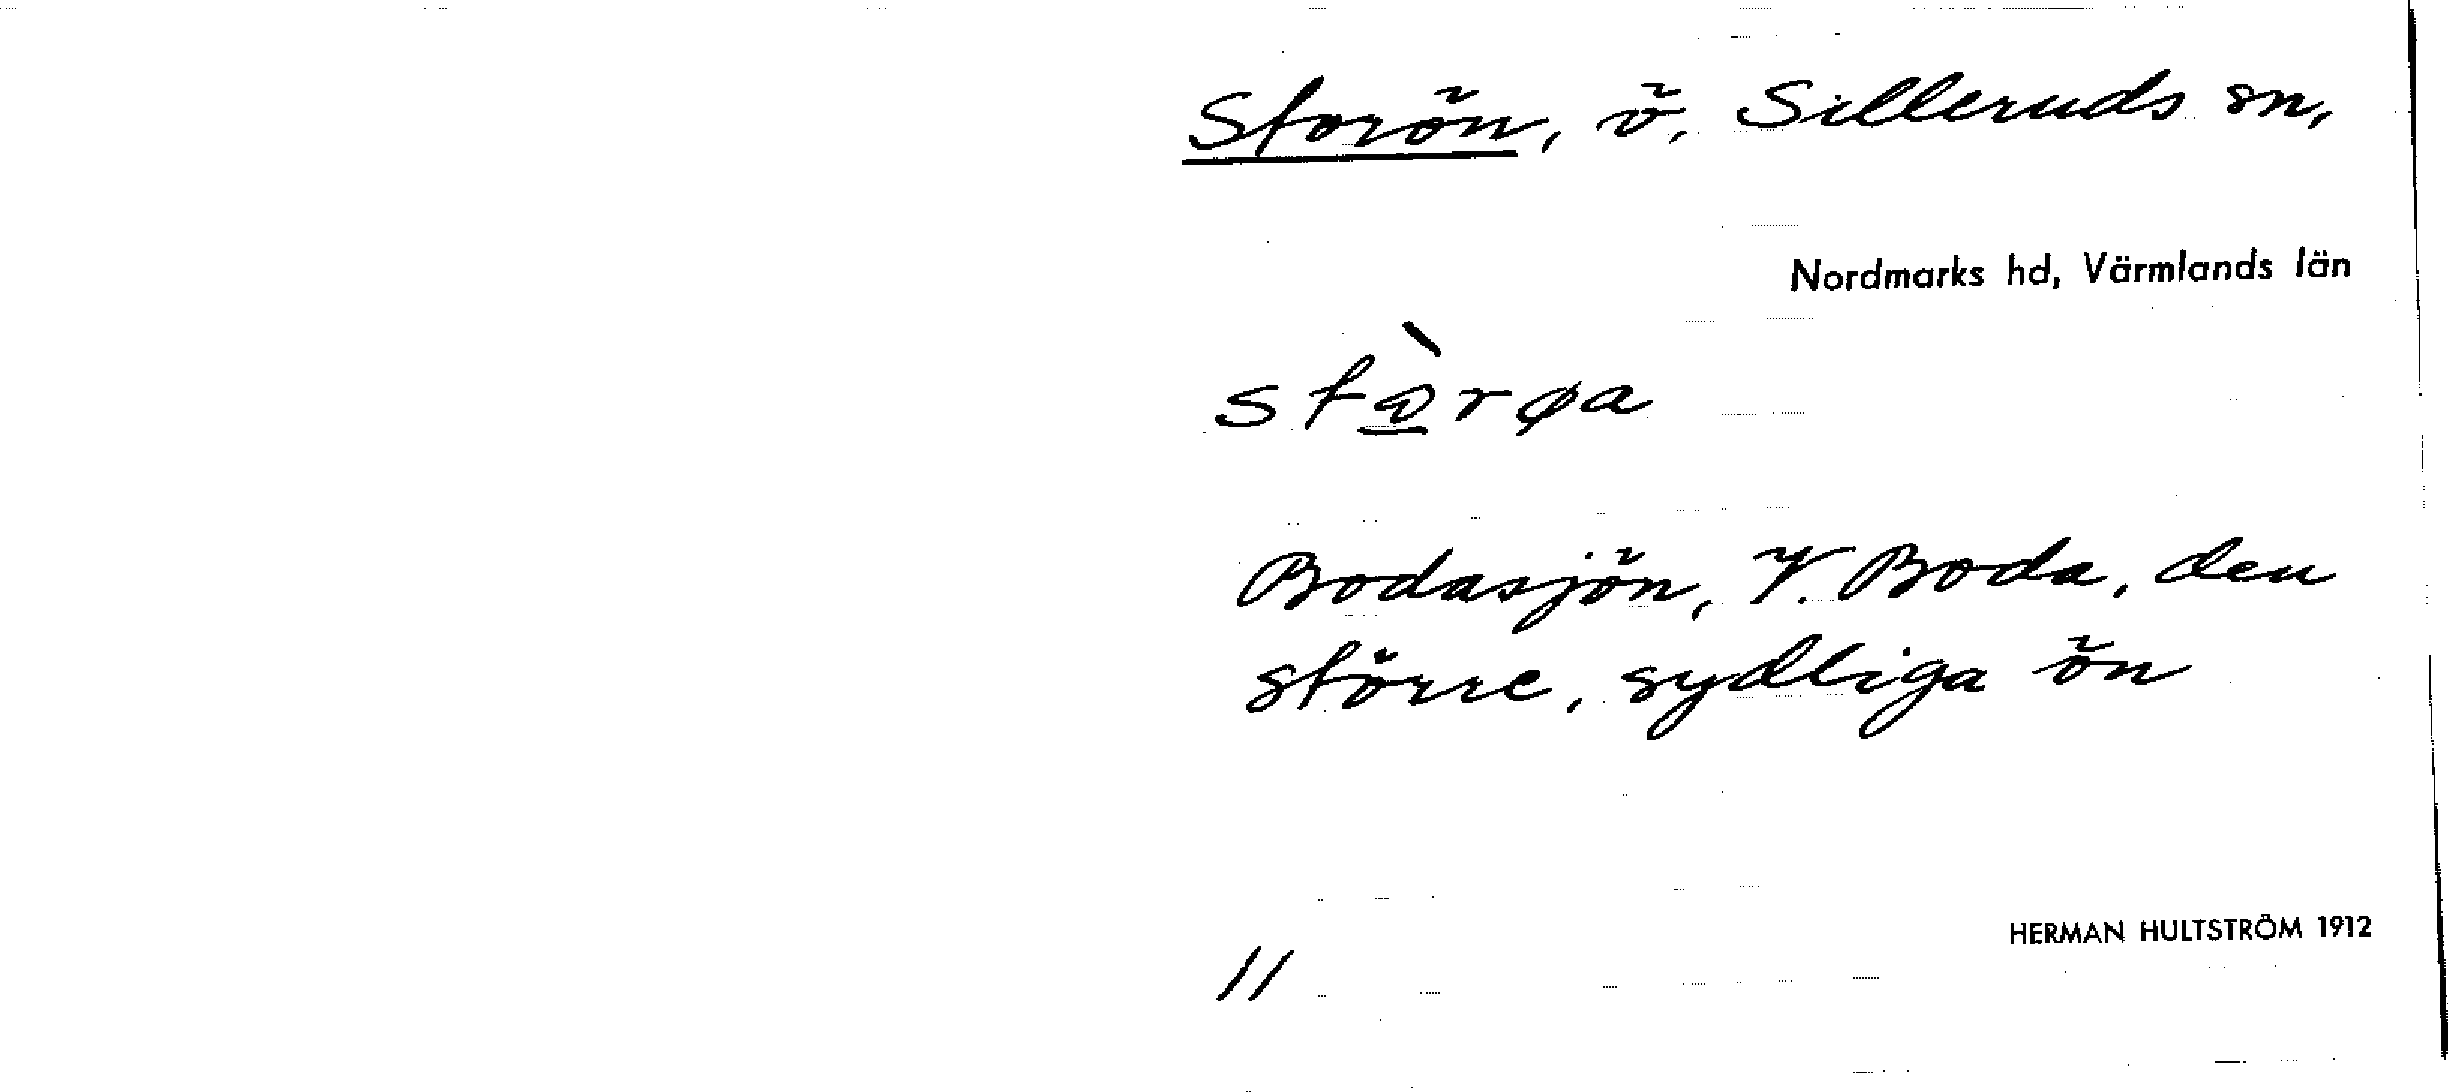 Storön, ö, Silleruds sn,
Nordmarks hd, Värmlands län
stò̱røa
Bodasjön, V. Boda, den
större, sydliga ön
HERMAN HULTSTRÖM 1912
11